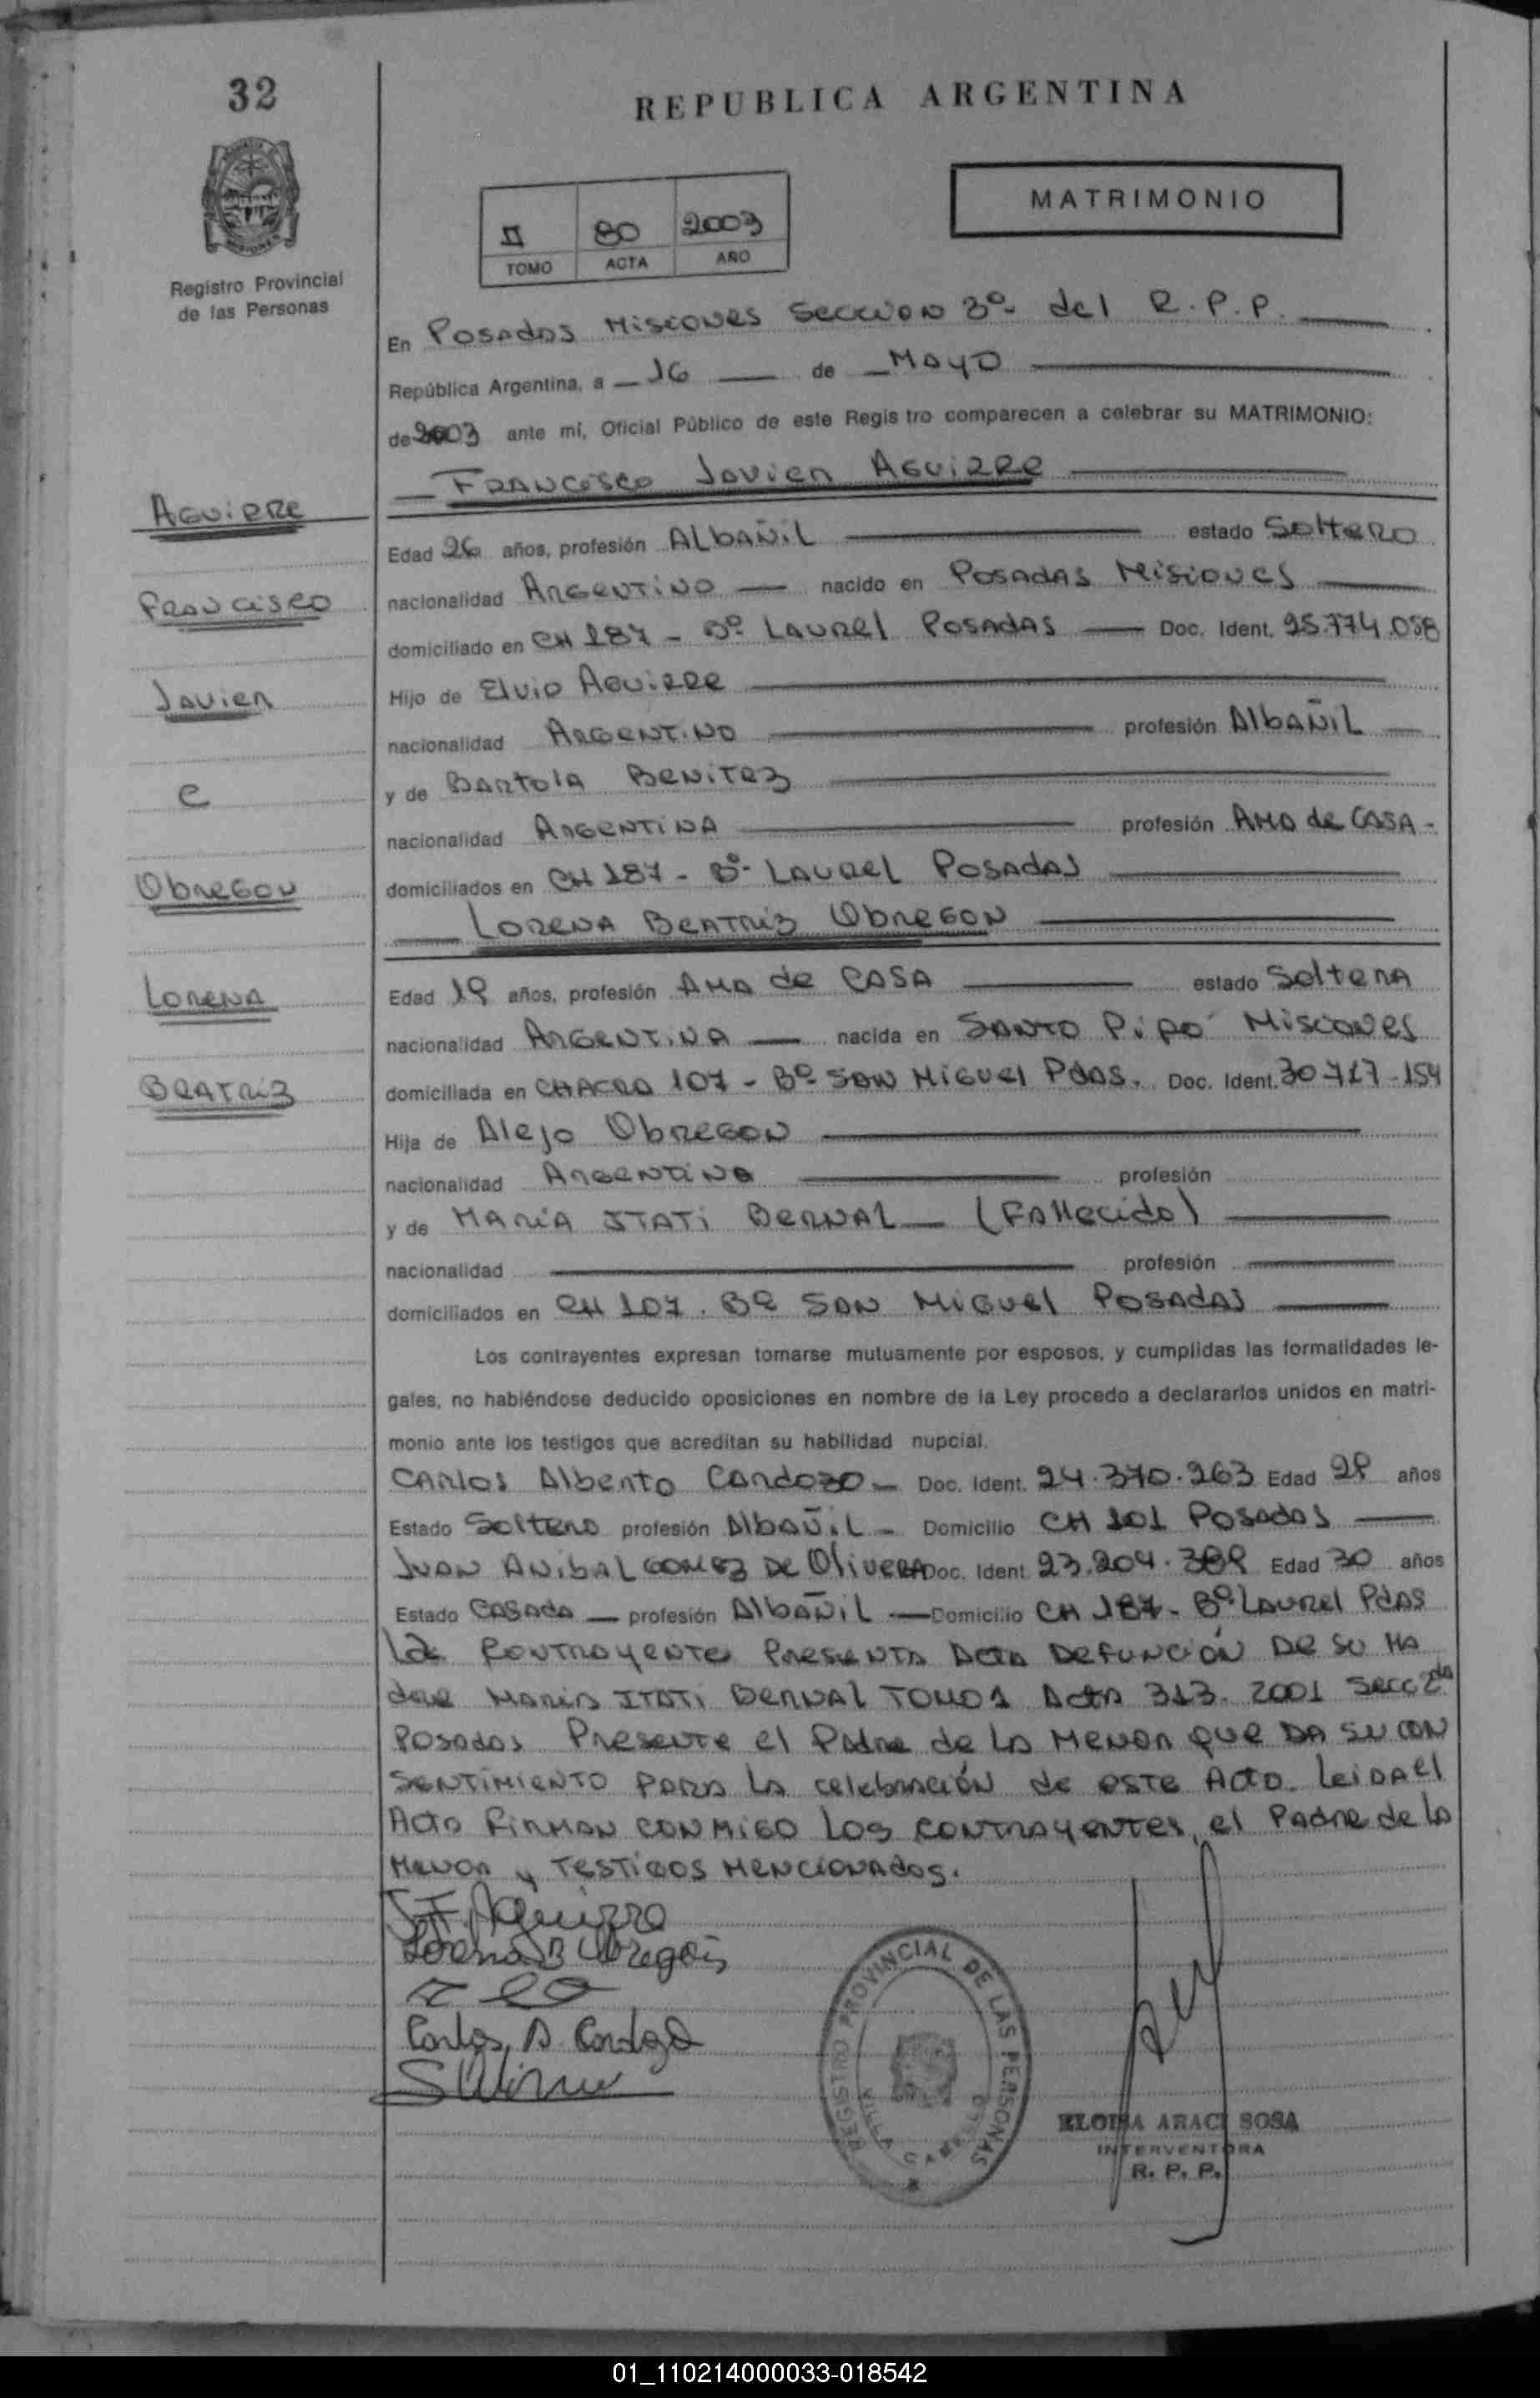 32
REPUBLICA ARGENTINA
MATRIMONIO
II 80 2003
TOMO ACTA AÑO
Registro Provincial
de las Personas
En Posadas Misiones Seccion 3º del R.P.P.
República Argentina, a 16 de Mayo
de 2003 ante mi, Oficial Público de este Registro comparecen a celebrar su MATRIMONIO:
Francisco Javier Aguirre
Aguirre
Francisco
Javier
e
Obregon
Lorena
Beatriz
Edad 26 años, profesión Albañil estado Soltero
nacionalidad Argentino nacido en Posadas Misiones
domiciliado en CH 187 - Bº Laurel Posadas Doc. Ident. 25.774.058
Hijo de Elvio Aguirre
nacionalidad Argentino profesión Albañil
y de Bartola Benitez
nacionalidad Argentina profesión Ama de Casa -
domiciliados en CH 187 - Bº Laurel Posadas
Lorena Beatriz Obregon
Edad 19 años, profesión Ama de Casa estado Soltera
nacionalidad Argentina nacida en Santo Pipó Misiones
domiciliada en Chacra 107 - Bº San Miguel Pdas. Doc. Ident. 30.717.154
Hija de Alejo Obregon
nacionalidad Argentino profesión
y de María Itati Bernal (Fallecida)
nacionalidad profesión
domiciliados en CH 107. Bº San Miguel Posadas
Los contrayentes expresan tomarse mutuamente por esposos, y cumplidas las formalidades le-
gales, no habiéndose deducido oposiciones en nombre de la Ley procedo a declararlos unidos en matri-
monio ante los testigos que acreditan su habilidad nupcial.
Carlos Alberto Cardozo - Doc. Ident. 24.370.263 Edad 28 años
Estado Soltero profesión Albañil - Domicilio CH 101 Posadas
Juan Anibal Gomez De Olivera Doc. Ident. 23.204.389 Edad 30 años
Estado Casado profesión Albañil Domicilio CH 187 - Bº Laurel Pdas
La contrayente presenta Acta Defunción de su Ma
dre Maria Itati Bernal Tomo 1 Acta 313. 2001 Secc 2da
Posadas Presente el Padre de la Menor que da su con
sentimiento para la celebración de este Acto. Leida el
Acta firman conmigo los contrayentes, el Padre de la
Menor y Testigos mencionados.
J.F. Aguirre
Lorena B Obregón
Carlos A. Cardozo
REGISTRO PROVINCIAL DE LAS PERSONAS
VILLA CABELLO
ELOISA ARACI SOSA
INTERVENTORA
R. P. P.
01_110214000033-018542